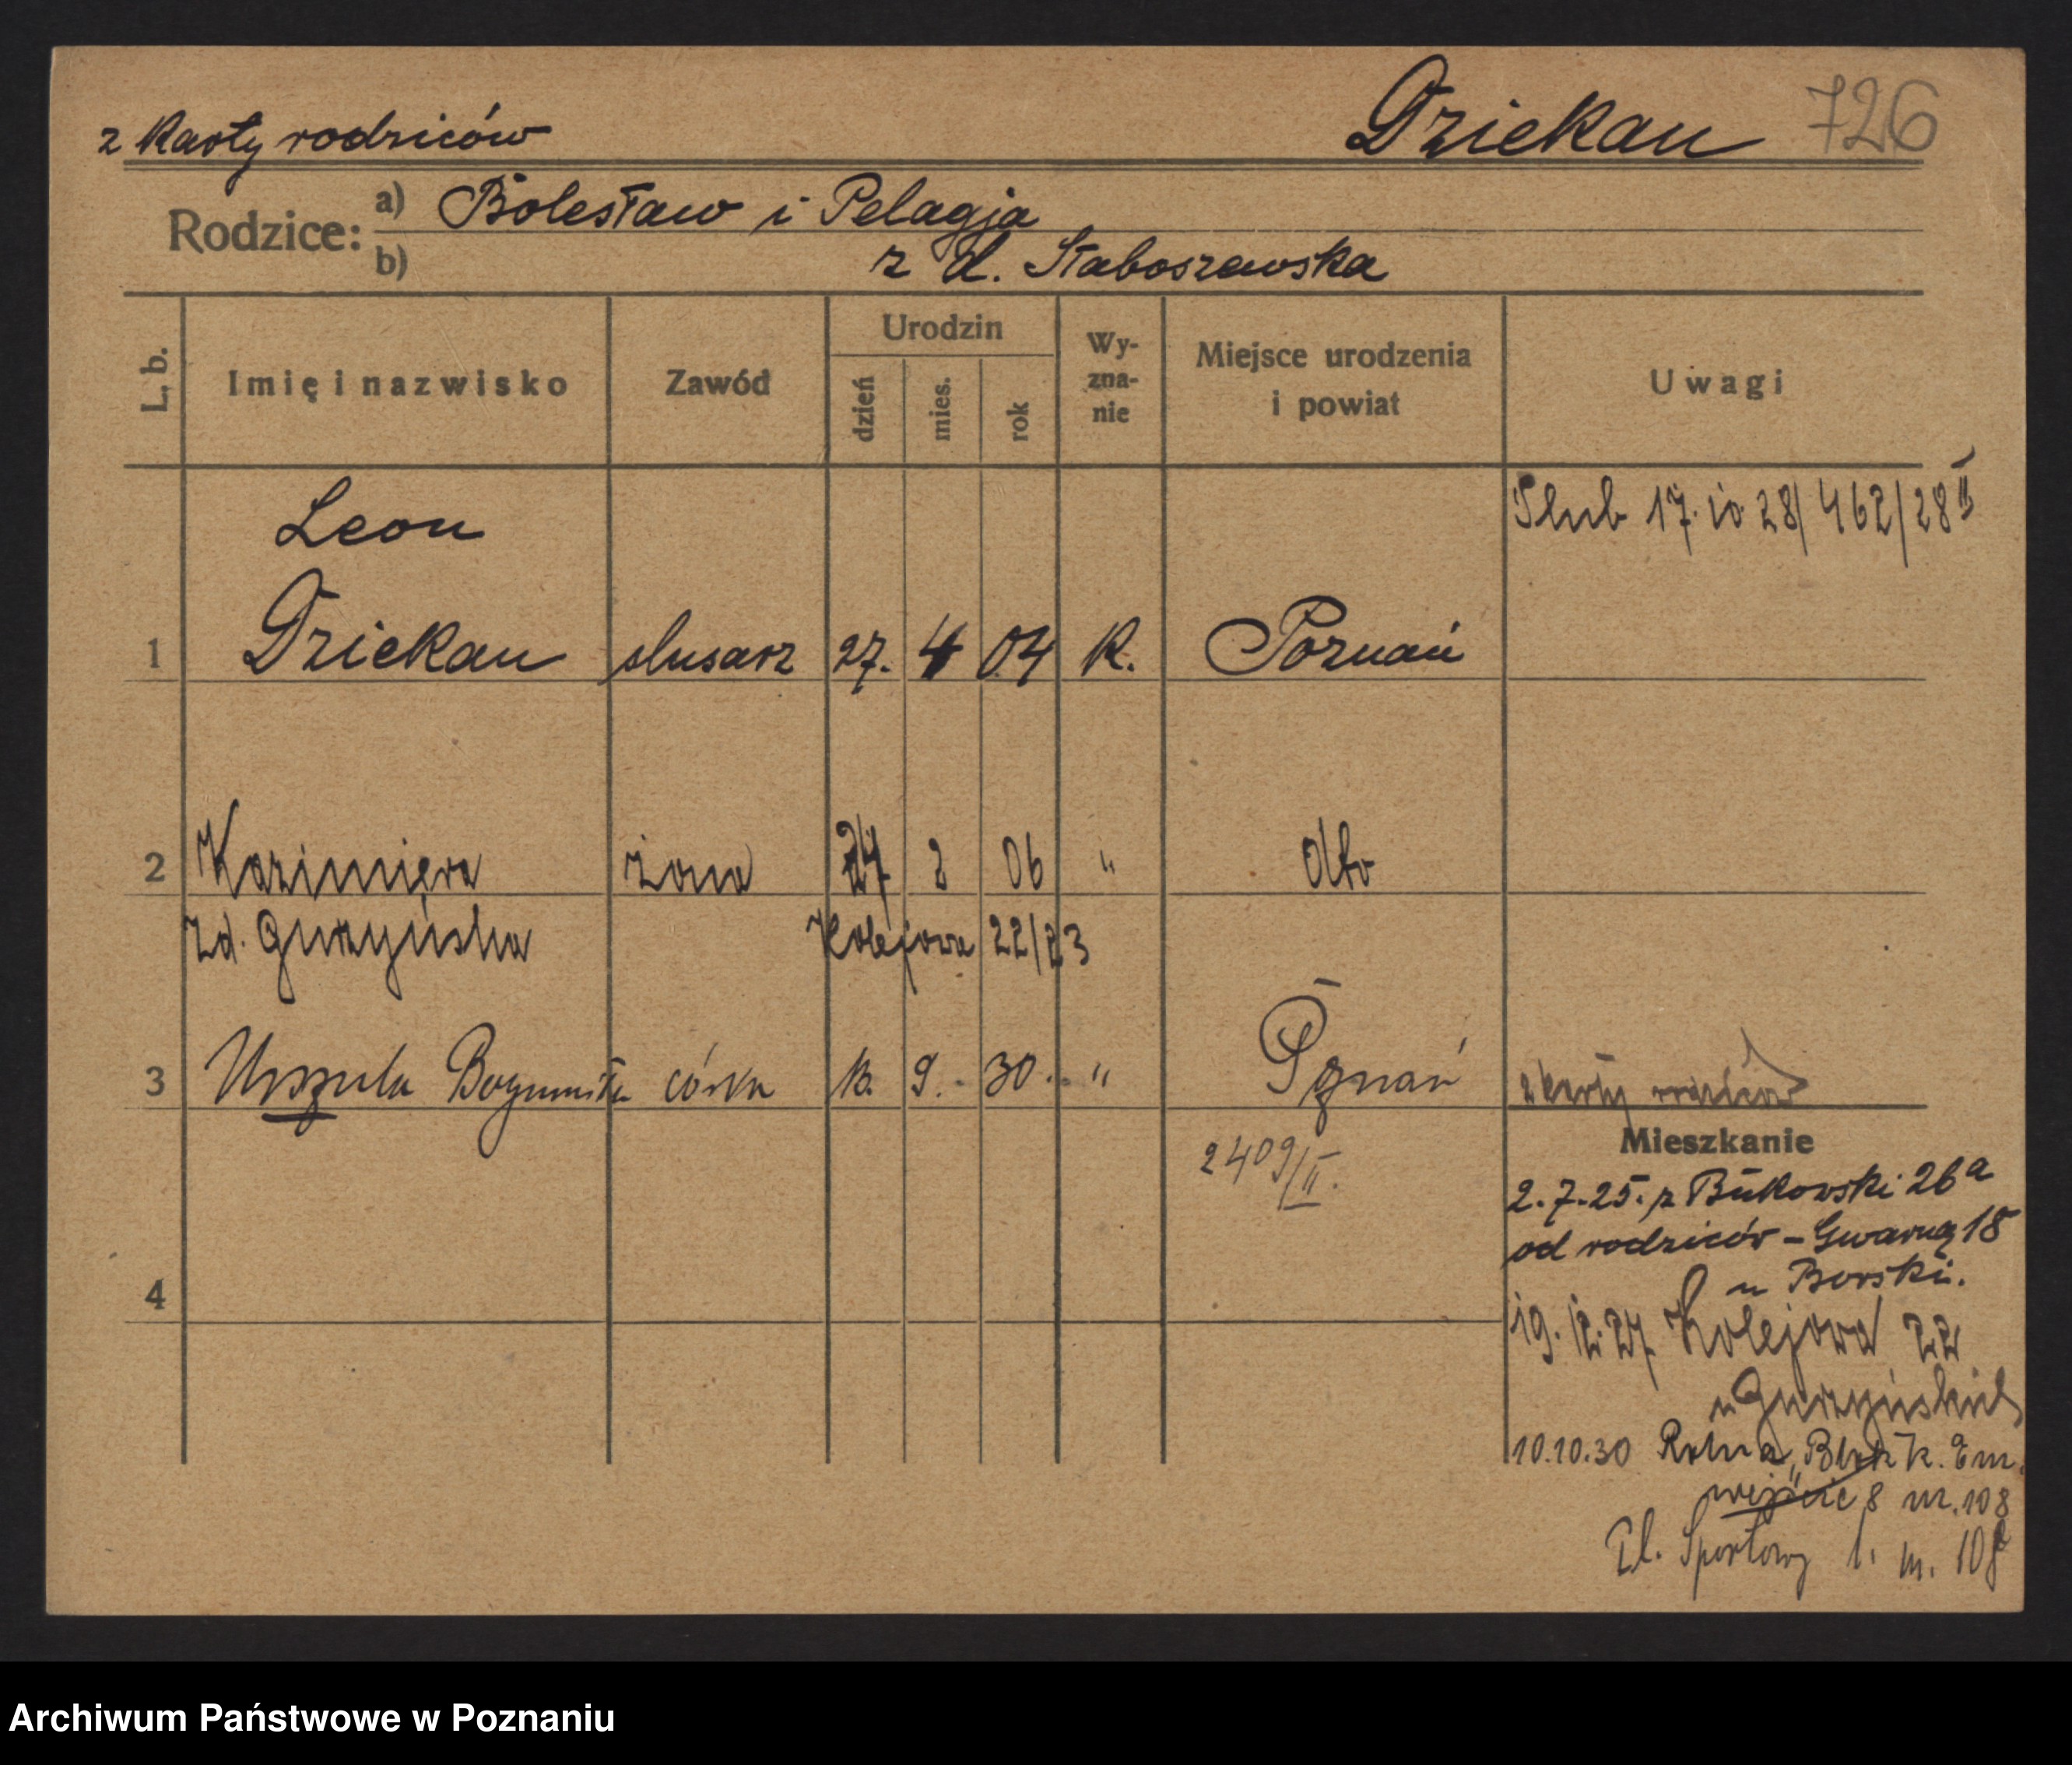 z karty rodziców Dziekan 726
Rodzice: a) Bolesław i Pelagja
b) z d. Staboszewska
L. b. Imię i nazwisko Zawód Urodzin dzień mies. rok Wy-zna-nie Miejsce urodzenia i powiat Uwagi
Ślub 17. 10. 28/ 462/28 II
Leon
1 Dziekan slusarz 27. 4 04 K. Poznań
2 Kazimiera żona 2 06 " dto
zd. Kolejowa 22/23
3 Urszula Bogumiła córka 9. 30. " Pznań z karty rodziców
2409/II.
Mieszkanie
2.7.25. z Bukowski 26a
od rodziców – Gwarną 18
u Borski.
4
19. 12. 27 Kolejowa 22
u
10.10.30 Rolna „Blok K. Em.
wejście 8 m. 108
Pl. Sportowy 1. m. 108
Archiwum Państwowe w Poznaniu